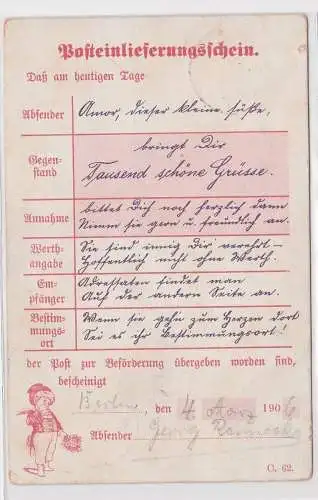 Posteinlieferungsschein.
Daß am heutigen Tage
Absender Amor, dieser kleine, süße,
bringt Dir
Gegen-
stand Tausend schöne Grüsse.
Annahme bittet Dich noch herzlich dann
Nimm sie gern u. freundlich an.
Werth-
angabe Sie sind innig Dir verehrt –
Hoffentlich nicht ohne Werth.
Em-
pfänger Adressaten findet man
Auf der andern Seite an.
Bestim-
mungs-
ort Wenn sie gehn zum Herzen dort
Sei es ihr Bestimmungsort!
der Post zur Beförderung übergeben worden sind,
bescheinigt
Berlin, den 4 März 1906
Absender Georg
C. 62.